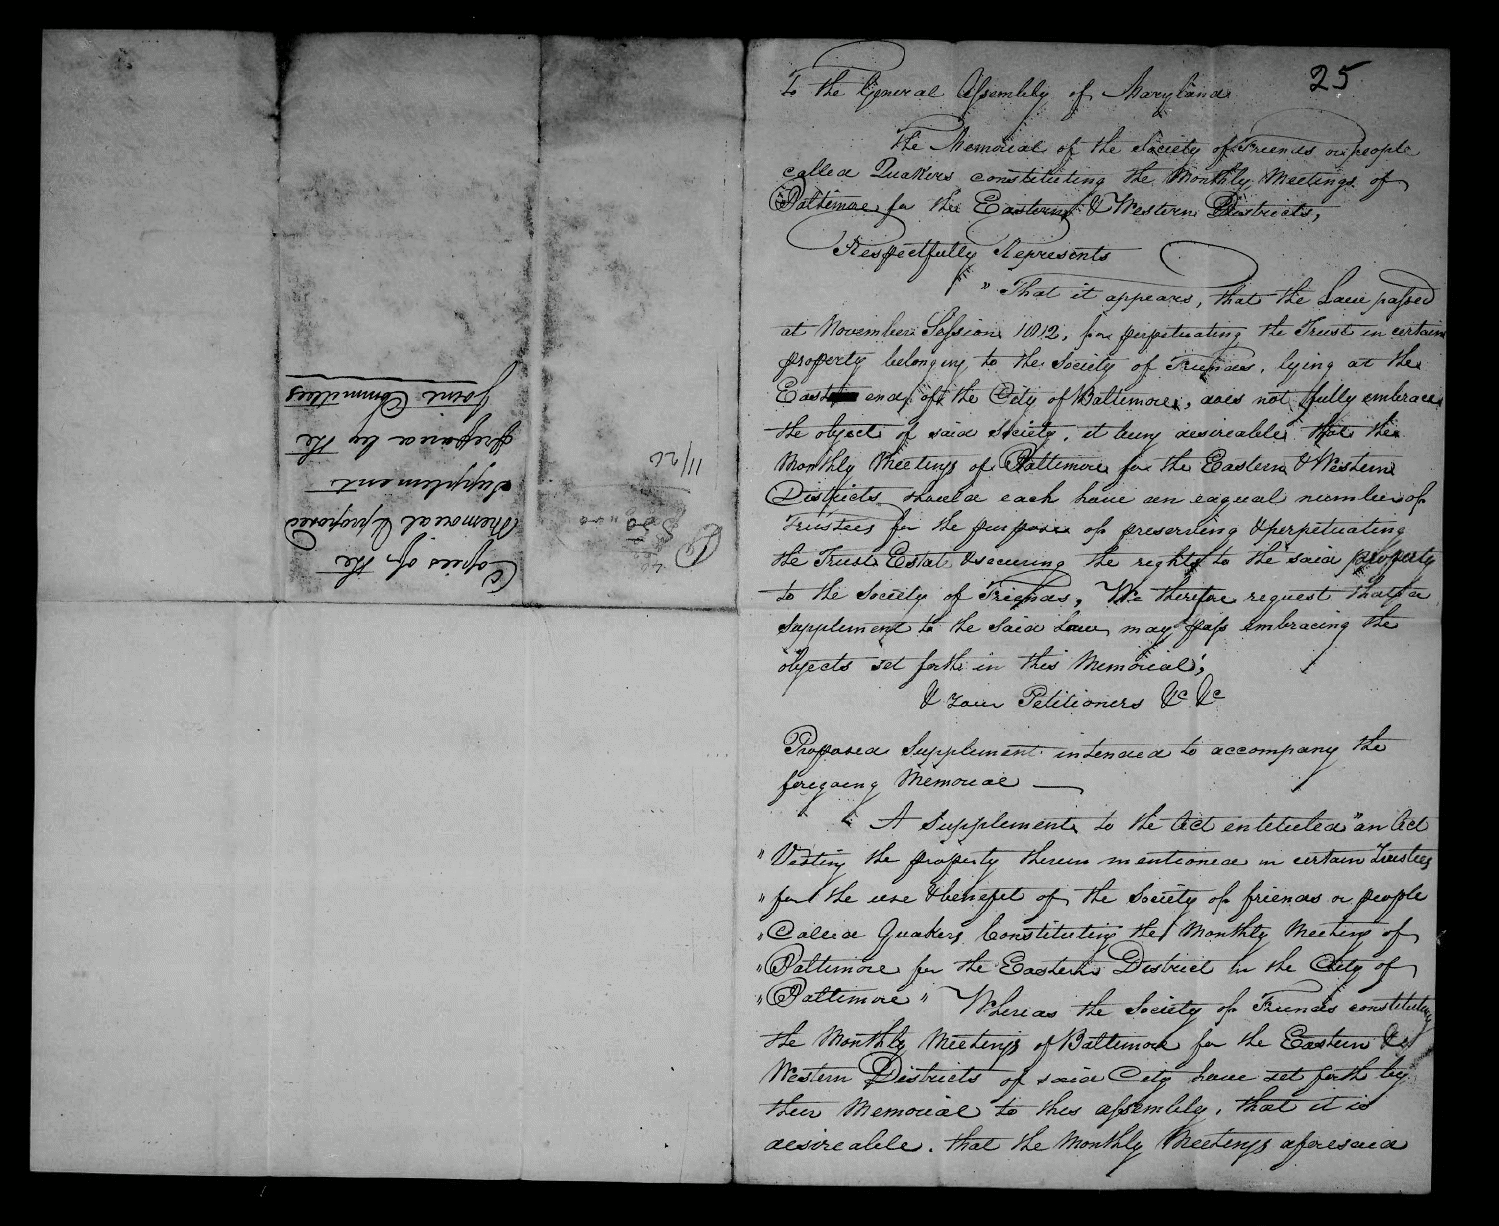 25
To the General Assembly of Maryland
The Memorial of the Society of Friends or people
called Quakers constituting the Monthly Meetings of
Baltimore for the Eastern & Western Districts,
Respectfully Represents
" That it appears, that the Law passed
at November Session 1812, for perpetuating the Trust in certain
property belonging to the Society of Friends, lying at the
East end of the City of Baltimore, does not fully embrace
the object of said Society, it being desireable that the
Monthly Meetings of Baltimore for the Eastern & Western
Districts should each have an eaqual number of
Trustees for the purpose of preserving & perpetuating
the Trust Estate & securing the right to the said property
to the Society of Friends, We therefore request that a
Supplement to the Said Law may pass embracing the
objects set forth in this Memorial;
& Your Petitioners &c &c
Proposed Supplement intended to accompany the
foregoing Memorial
A Supplement to the Act entituled "an Act
" Vesting the property therein mentioned in certain Trustees
" for the use & benefit of the Society of friends or people
" Called Quakers Constituting the Monthly Meeting of
" Baltimore for the Eastern District in the City of
" Baltimore " Whereas the Society of Friends constituting
the Monthly Meetings of Baltimore for the Eastern &
Western Districts of said City have set forth by
their Memorial to this assembly, that it is
desireable, that the Monthly Meetings aforesaid
Copies of the
Memorial & proposed
Supplement
prepared by the
Joint Committees
11/26